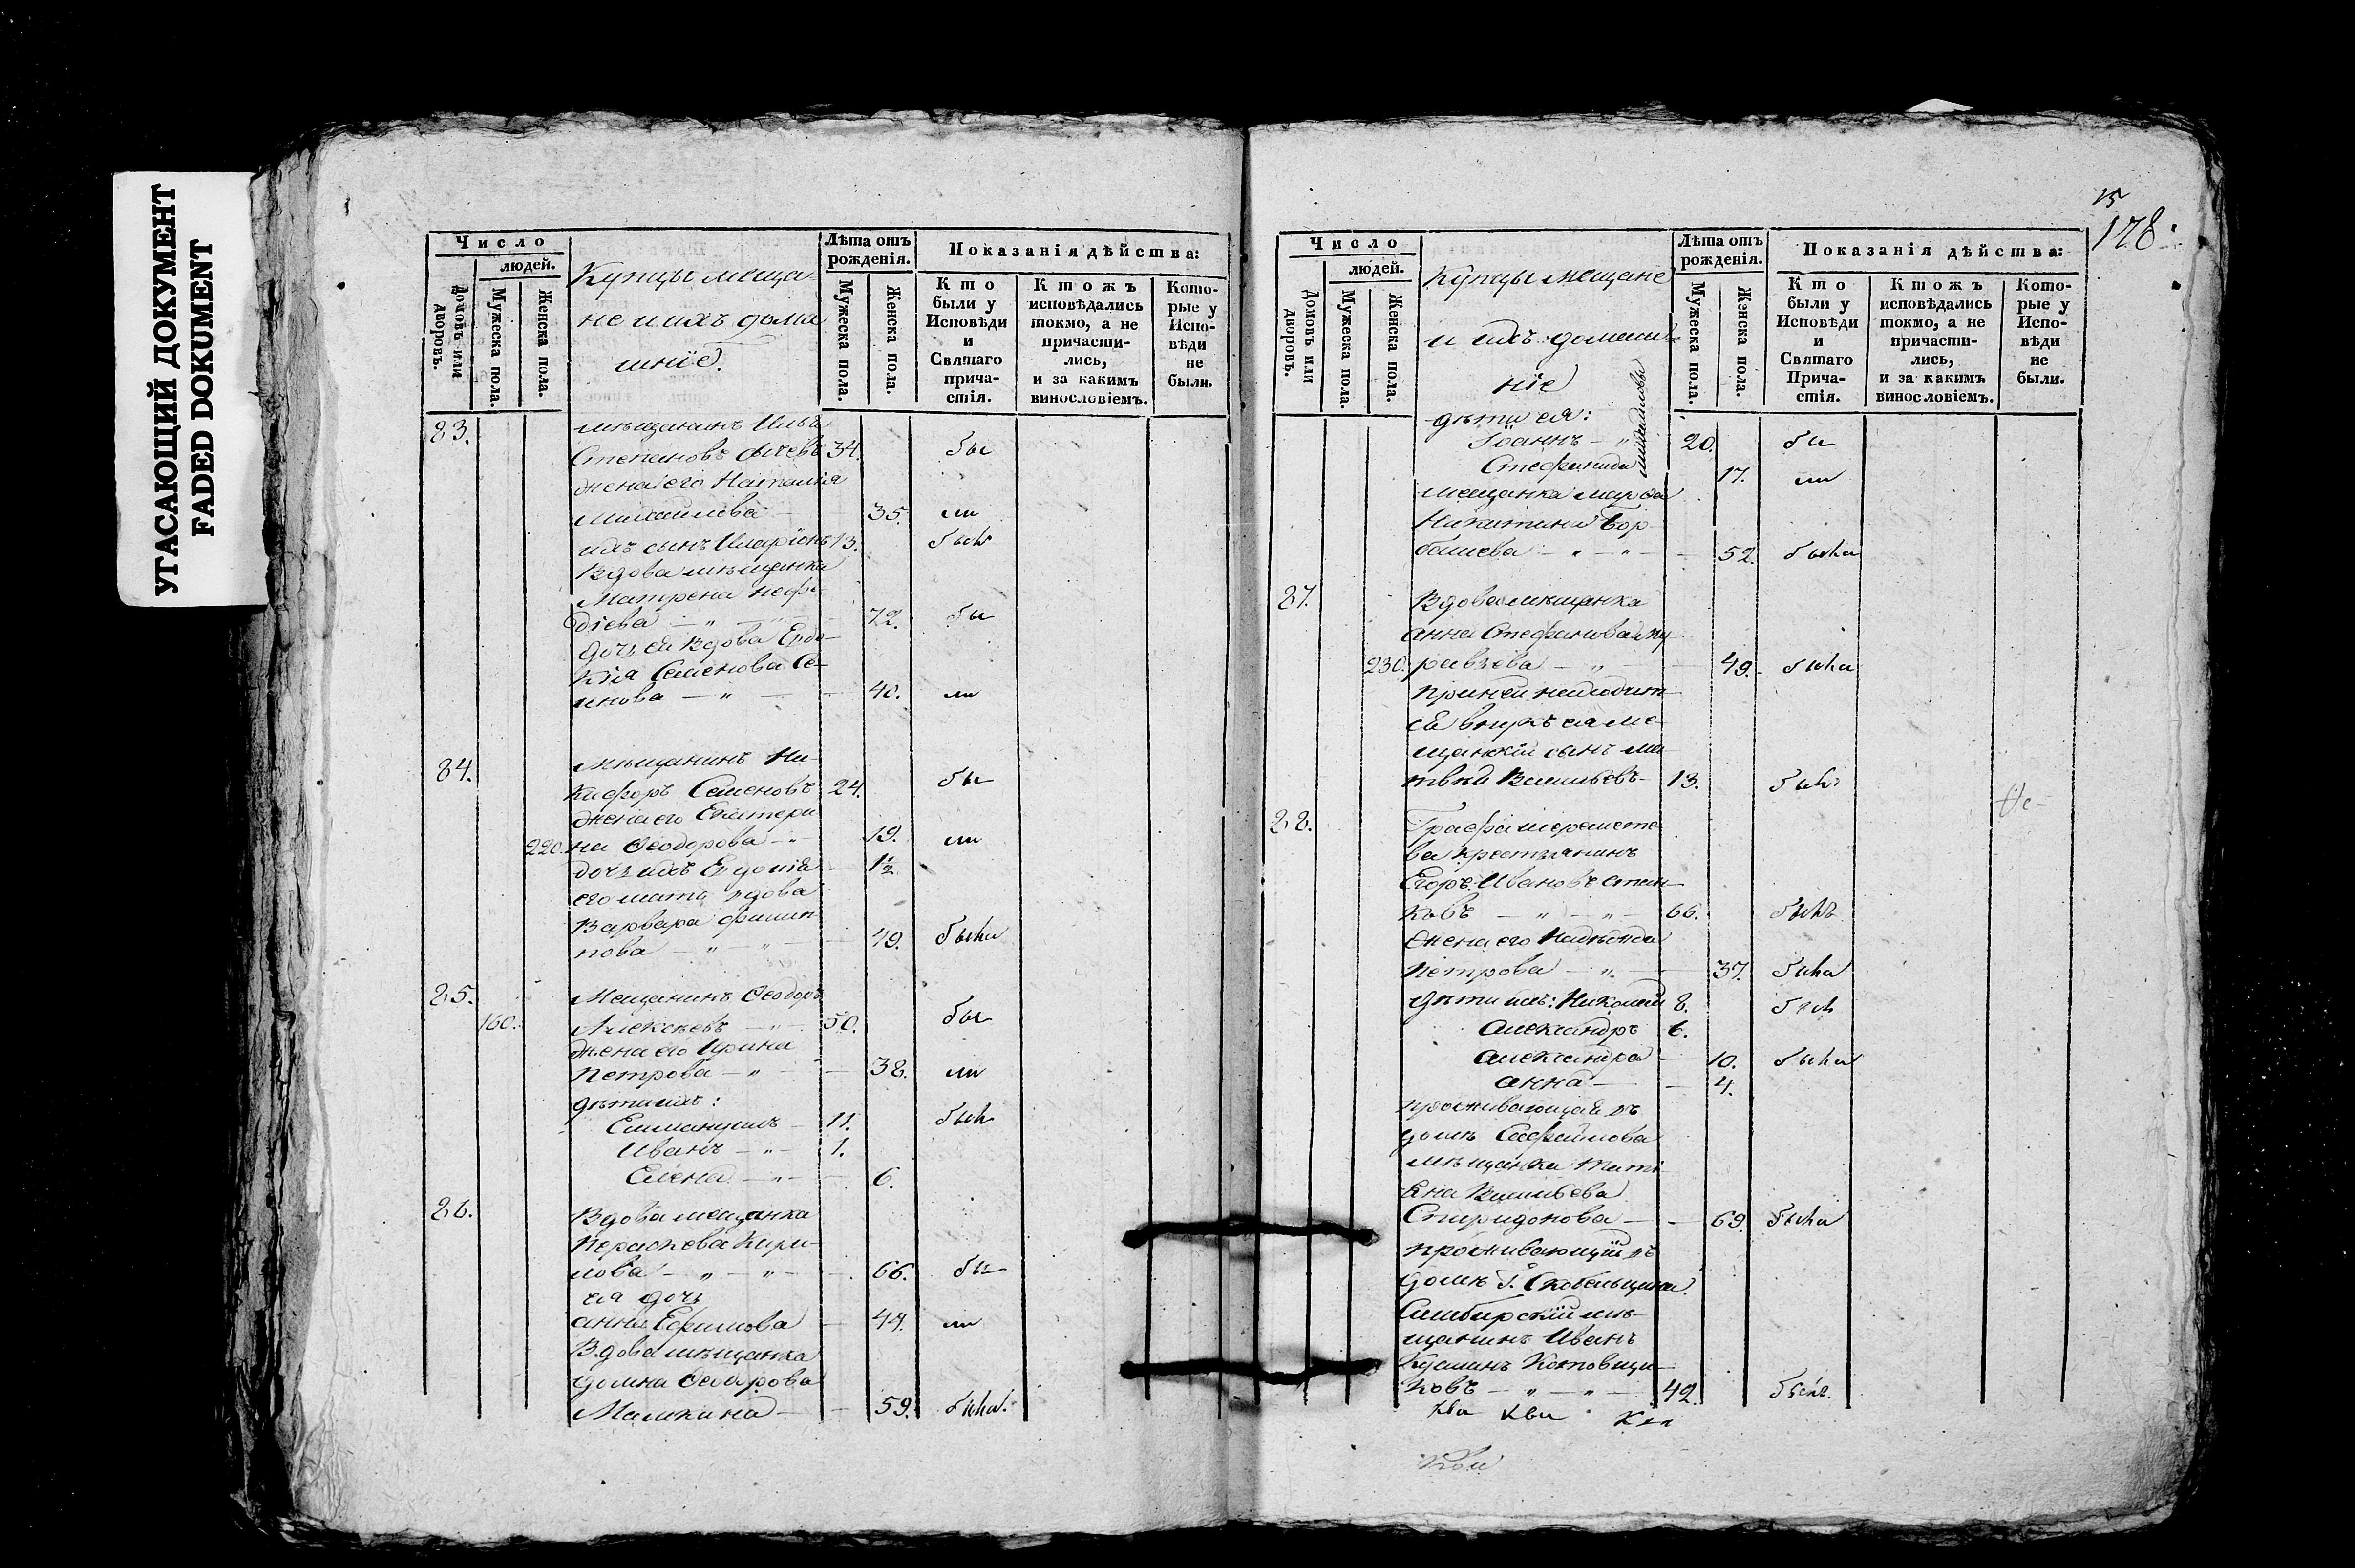 УГАСАЮЩИЙ ДОКУМЕНТ
FADED DOKUMENT
Число
людей.
Домовъ или дворовъ.
Мужеска пола.
Женска пола.
Купцы меща-
не и ихъ дома
шніе.
Лѣта отъ рожденія.
Мужеска пола.
Женска пола.
Показанія дѣйства:
Кто были у Исповѣди и Святаго прича-стія.
Ктожъ исповѣдались токмо, а не причасти-лись, и за какимъ винословіемъ.
Кото-рые у Испо-вѣди не были.
83. мѣщанинъ Илья
Степановъ 34. бы
жена его Наталія
Михайлова 35. ли
ихъ сынъ Иларіонъ 13. былъ
Вдова мѣщанка
Матрена Меѳо-
діева 72. бы
дочь ея вдова Евдо-
кія Семенова Се-
инова 40. ли
84. мѣщанинъ Ни-
кифоръ Семеновъ 24. бы
жена его Екатери
220. на Ѳеодорова 19. ли
дочь ихъ Евдокія 1½
его мать вдова
Варвара Филип-
пова 49. была
85. Мещанинъ Ѳеодоръ
160. Алексѣевъ 50. бы
жена его Ирина
Петрова 38. ли
дѣти ихъ:
Еммануилъ 11. былъ
Иванъ 1.
Елена 6.
86. Вдова мещанка
Параскева Кири-
лова 66. бы
ея дочь
Анна Ефимова 44. ли
Вдова мѣщанка
Домна Ѳеодорова
Малкина 59. была.
15
178.
Число
людей.
Домовъ или дворовъ.
Мужеска пола.
Женска пола.
Купцы мещане
и ихъ домаш-
ніе
Лѣта отъ рожденія.
Мужеска пола.
Женска пола.
Показанія дѣйства:
Кто были у Исповѣди и Святаго Прича-стія.
Ктожъ исповѣдались токмо, а не причасти-лись, и за какимъ винословіемъ.
Кото-рые у Испо-вѣди не были.
дѣти ея:
Іоаннъ 20. бы
Стефанида 17. ли
мещанка Марѳа
Никитина Бор-
башева 52. была
87. Вдова мѣщанка
Анна Стефанова Жу
230. равлева 49. была
при ней находит-
ся внукъ ея ме-
щанскій сынъ Ма
твѣй Васильевъ 13. былъ
88. Графа Шереметe
ва крестьянинъ
Егоръ Ивановъ
ковъ 66. былъ
жена его Надѣжда
Петрова 37. была
дѣти ихъ: Николай 8. былъ
Александръ 6.
Александра 10. была
Анна 4.
проживающая въ
домѣ Сафайлова
мѣщанка Тати
яна Васильева
Спиридонова 69. была
проживающій въ
домѣ Г. Скобельцына
Симбирскій мѣ-
щанинъ Иванъ
Кузминъ Котовщи-
ковъ 42. былъ.
ква ква ква
ква